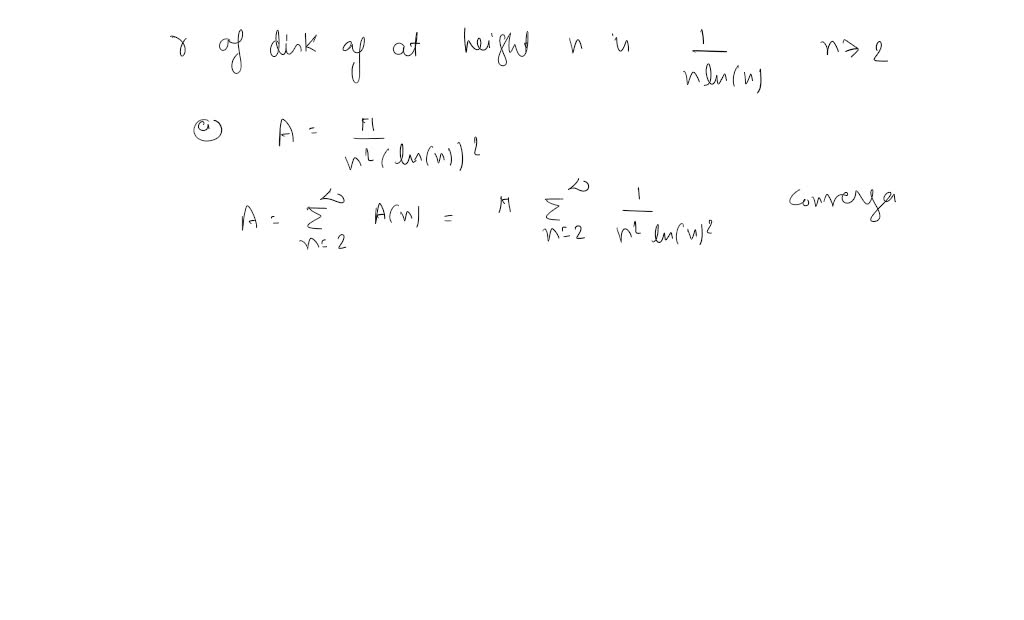 r of disk of at height n is 1/(n ln(n)) n ≥ 2
(a) A = π/(n²(ln(n))²)
A = ∑_{n=2}^{∞} A(n) = π ∑_{n=2}^{∞} 1/(n² ln(n)²) converges